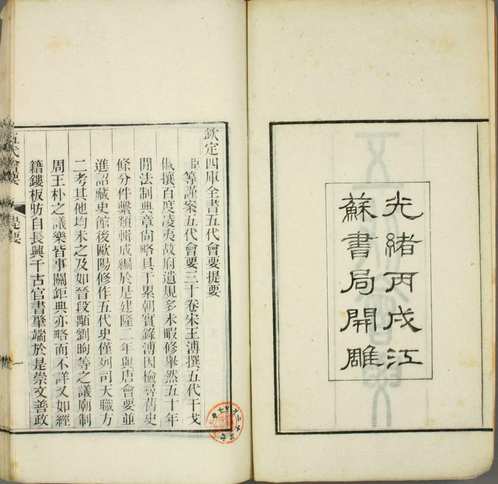 光緒丙戌江
蘇書局開雕
欽定四庫全書五代會要提要
臣等謹案五代會要三十卷宋王溥撰五代干戈
俶擾百度凌夷故府遺規多未暇修舉然五十年
間法制典章尚略具于累朝實錄溥因檢尋舊史
條分件繫類輯成編於建隆二年與唐會要並
進詔藏史館後歐陽修作五代史僅列司天職方
二考其他均未之及如晉段顒劉昫等之議廟制
周王朴之議樂皆事關鉅典亦略而不詳又如經
籍鏤板昉自長興千古官書肇端於是崇文善政
五代會要
提要